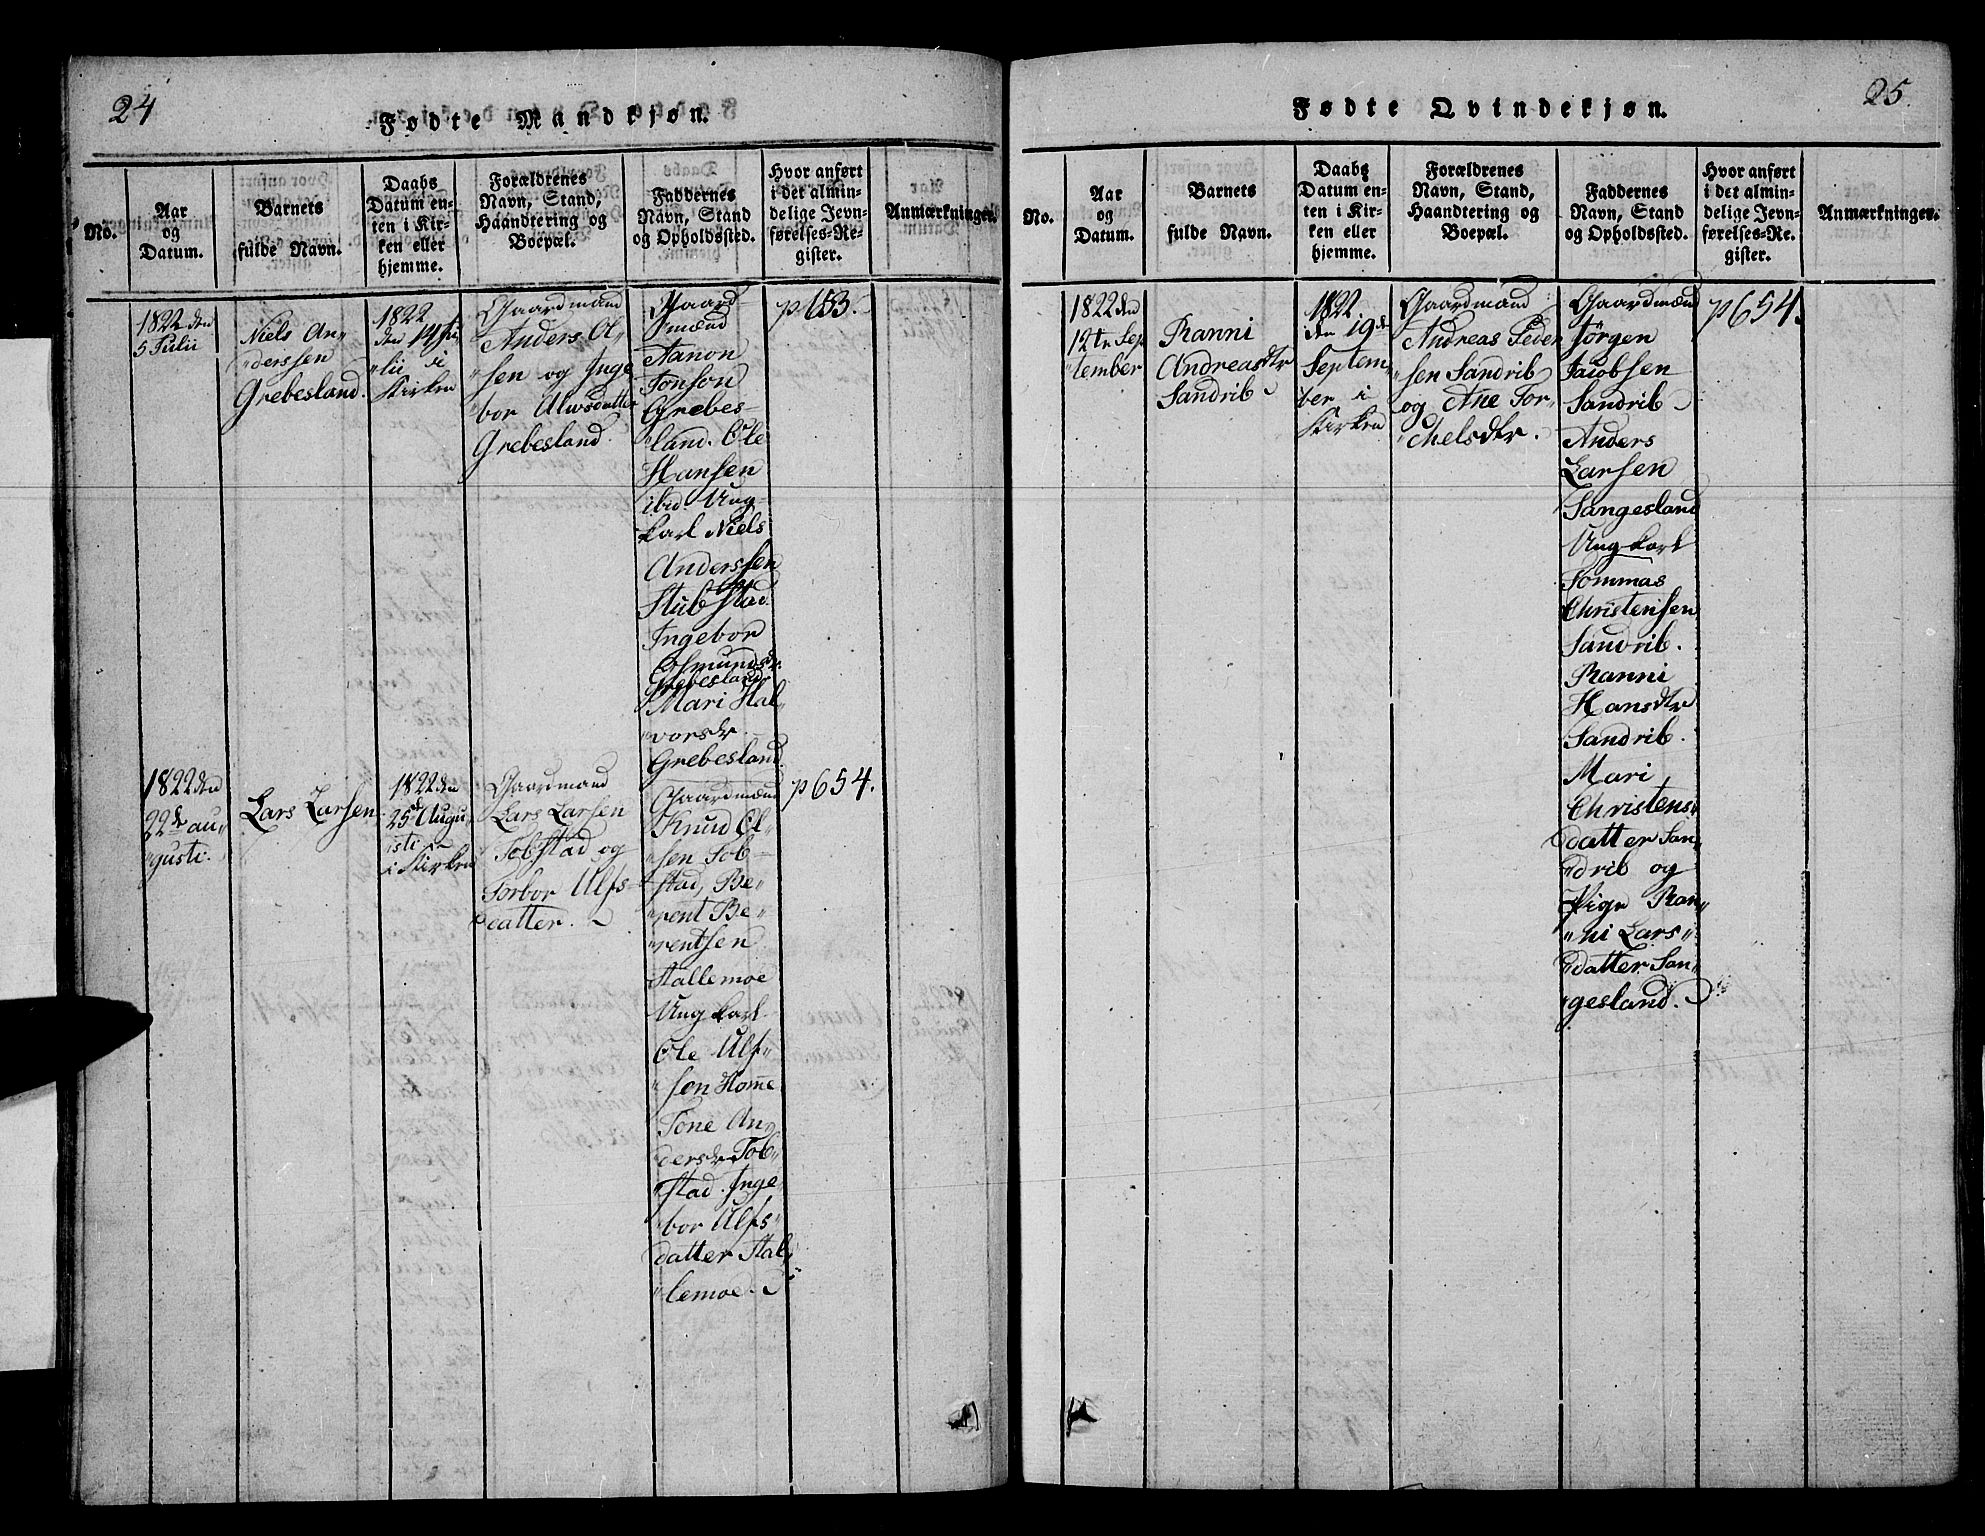 24
Fødte Mandkjøn.
No.
Aar
og
Datum.
Barnets
fulde Navn.
Daabs
Datum en-
ten i Kir-
ken eller
hjemme.
Forældrenes
Navn, Stand,
Haandtering og
Boepæl.
Faddernes
Navn, Stand
og Opholdssted.
Hvor anført
i det almin-
delige Jevn-
førelses-Re-
gister.
Anmærkninger.
1822 den
5 Julii
Niels An-
derssen
Grebesland.
1822
den 14 Ju
lii i
Kirken
Gaardmand
Anders Ol-
sen og Inge
bor Ulwsdatter
Grebesland.
Gaard-
mænd
Tanon
Tonson
Grebes-
land. Ole
Hansen
ibid Ung-
karl Niels
Anderssen
Stubstad
Ingebor
Osmundsdr
Grebesland
Mari Hal
vorsdr
Grebesland.
p 653.
1822 den
22de au
gusti.
Lars Larsen
1822 den
25d Augu
isti
i Kirken
Gaardmand
Lars Larsen
Tobstad og
Torbor Ulfs-
datter.
Gaardmænd
Knud Ol
sen Tob-
stad, Be-
rent Be-
rentsen
Stallemoe
Ung karl
Ole Ulf
sen Home
Tone An
dersdr Tob
stad. Inge
bor Ulfs
datter Stal
lemoe.
p 654.
25.
Fødte Qvindekjøn.
No.
Aar
og
Datum.
Barnets
fulde Navn.
Daabs
Datum en-
ten i Kir-
ken eller
hjemme.
Forældrenes
Navn, Stand,
Haandtering og
Boepæl.
Faddernes
Navn, Stand
og Opholdssted.
Hvor anført
i det almin-
delige Jevn-
førelses-Re-
gister.
Anmærkninger.
1822 den
12te Sep
tember
Ranni
Andreasdtr
Sandrib
1822
den 19de
Septem
ber i
Kirken
Gaardmand
Andreas Peder
sen Sandrib
og Ane Tor-
chelsdtr.
Gaardmænd
Jørgen
Jacobsen
Sandrib
Anders
Larsen
Sangesland
Ung karl
Tommas
Christensen
Sandrib.
Ranni
Hansdtr
Sandrib.
Mari
Christens
datter San
drib og
Pige Ran
ni Lars
datter San
gesland.
p 654.